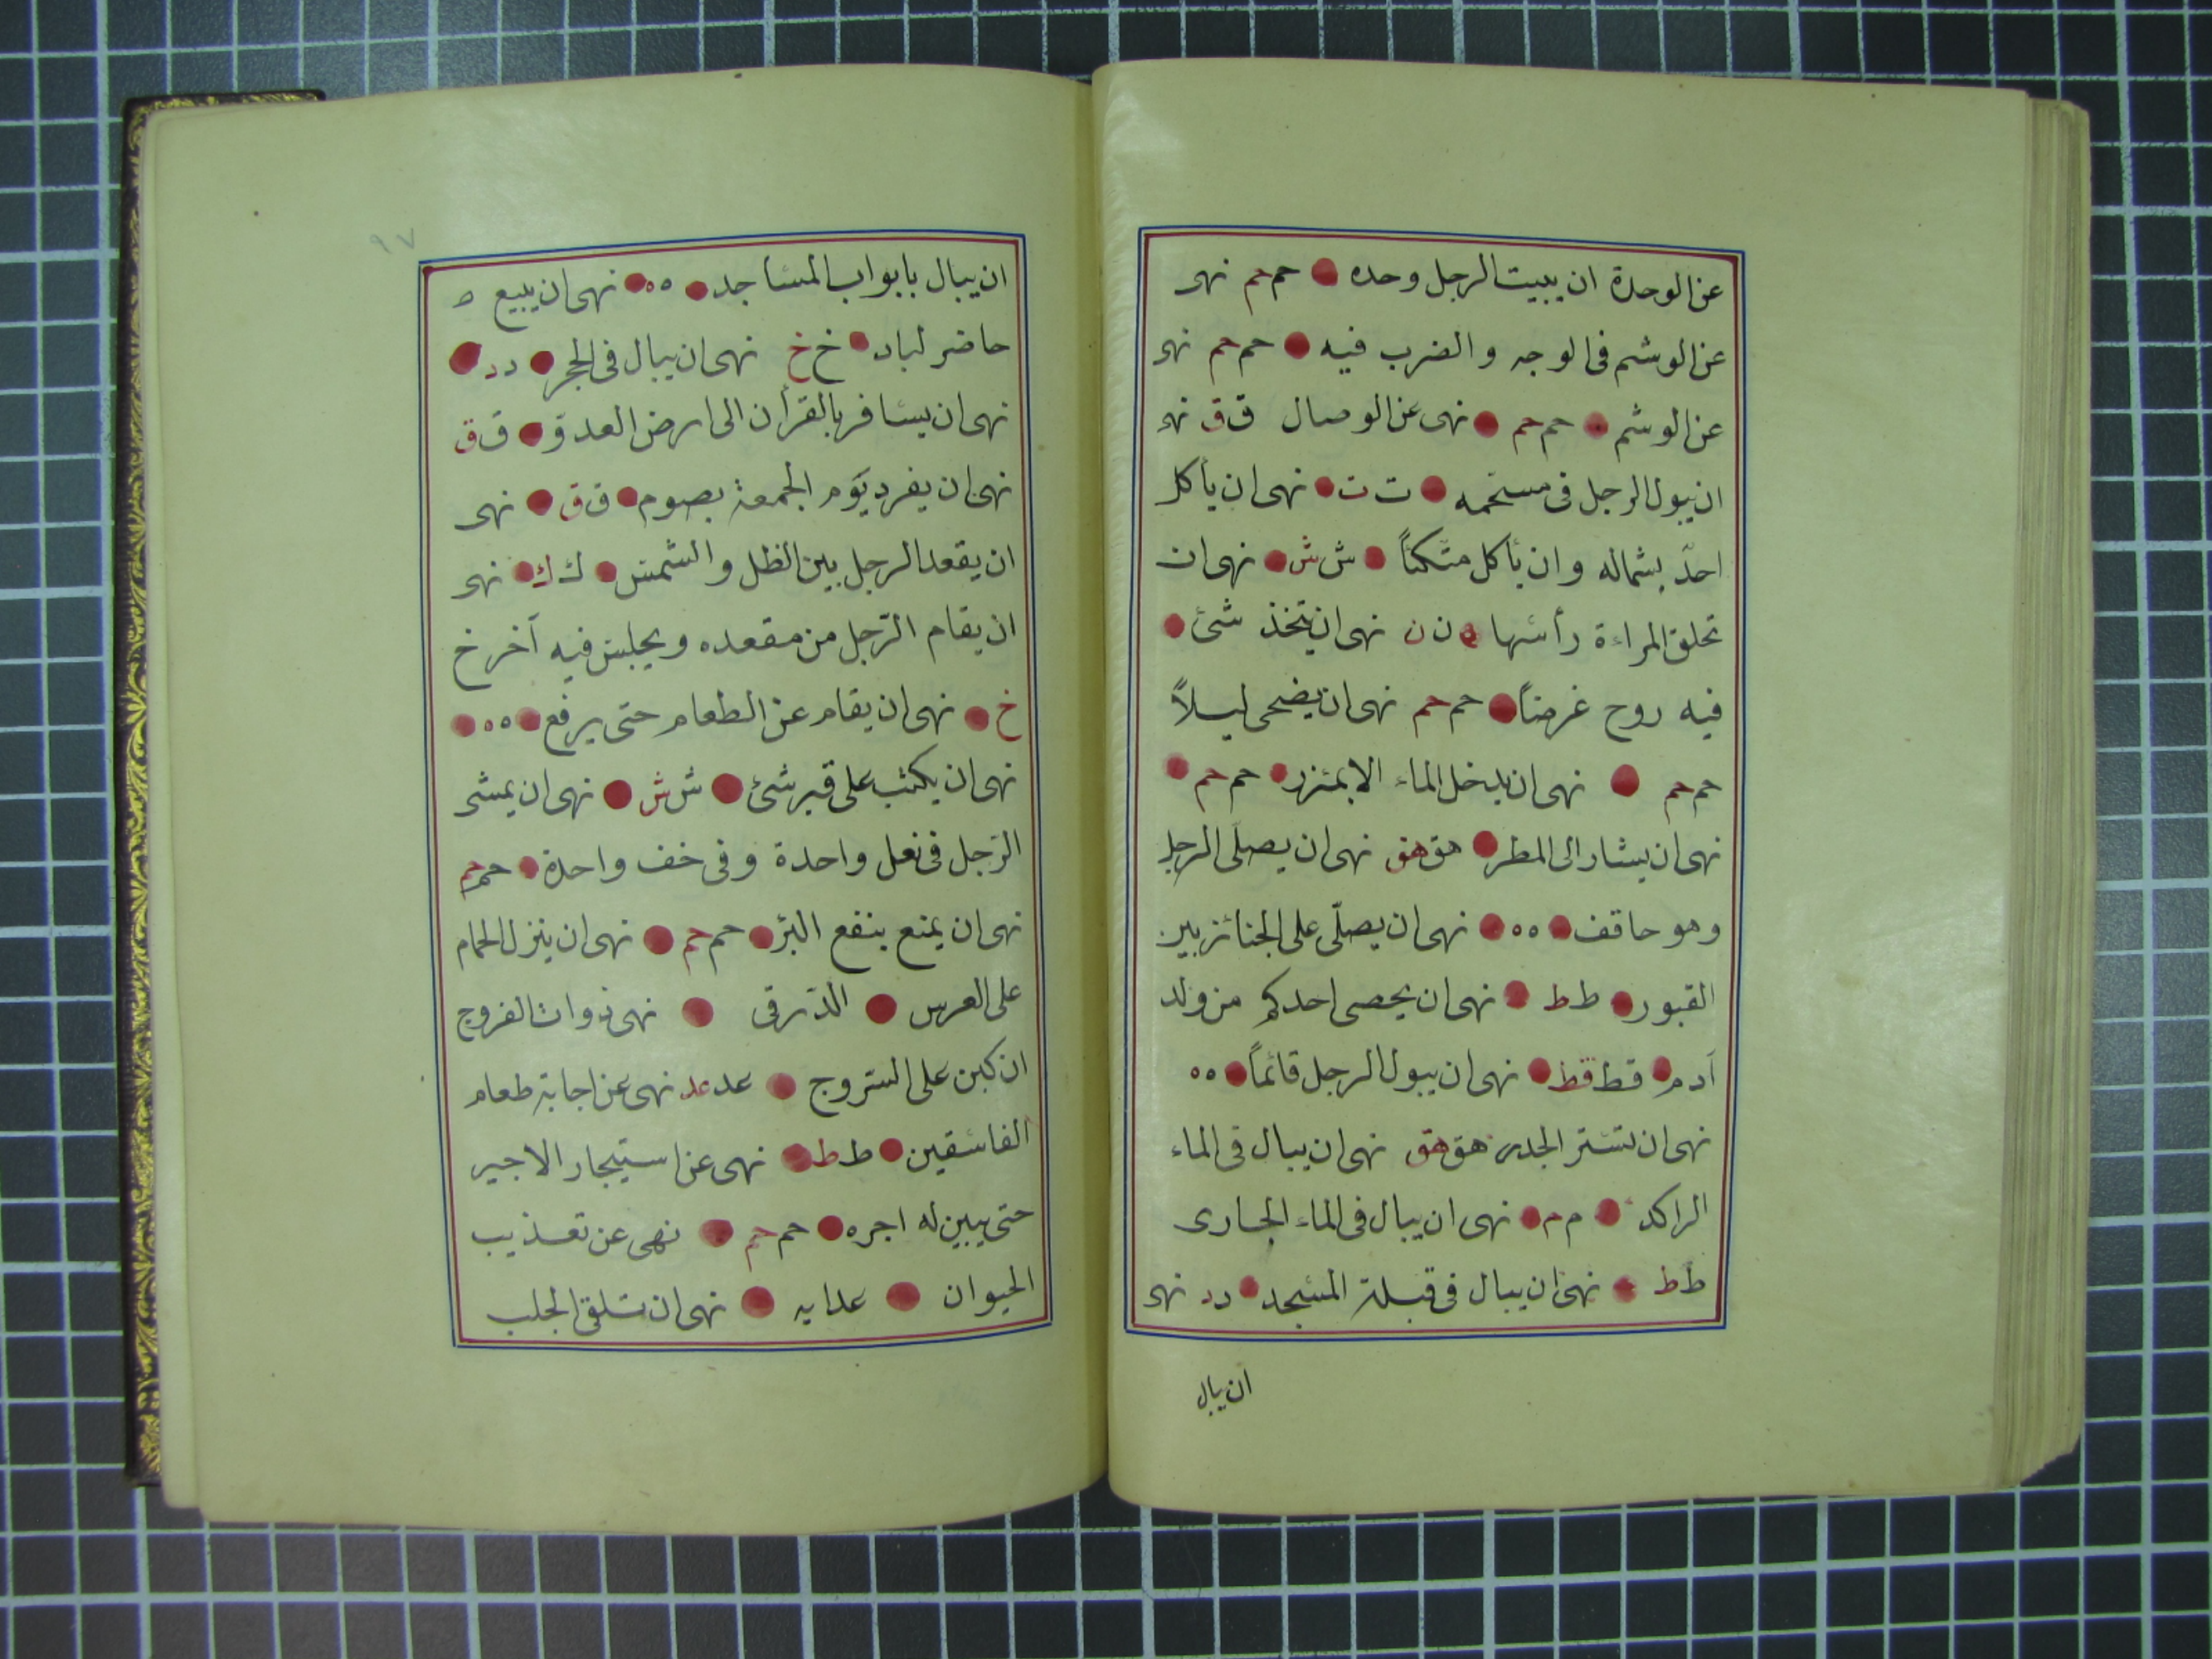 عن الوحدة ان يبيت الرجل وحده حم حم نهى
عن الوشم فى الوجه والضرب فيه حم حم نهى
عن الوشم حم حم نهى عن الوصال ق ق نهى
ان يبول الرجل فى مستحمه ت ت نهى ان يأكل
احدّ بشماله وان يأكل متكئاً ش ش نهى ان
تحلق المراءة رأسها ن ن نهى ان يتخذ شئ
فيه روح غرضاً حم حم نهى ان يضحى ليلاً
حم حم نهى ان يدخل الماء الا بمئزر حم حم
نهى ان يشار الى المطر هق هق نهى ان يصلّى الرجل
وهو حاقف ه ه نهى ان يصلّى على الجنائز بين
القبور ط ط نهى ان يخصى احدكم من ولد
آدم قط قط نهى ان يبول الرجل قائماً ه ه
نهى ان تستتر الجدر هق هق نهى ان يبال فى الماء
الراكد م م نهى ان يبال فى الماء الجارى
ط ط نهى ان يبال فى قبلة المسجد د د نهى
ان يبال
٩٧
ان يبال بابواب المساجد ه ه نهى ان يبيع
حاضر لباد خ خ نهى ان يبال فى الجحر د د
نهى ان يسافر بالقرأن الى ارض العدوّ ق ق
نهى ان يفرد يوم الجمعة بصوم ق ق نهى
ان يقعد الرجل بين الظل والشمس ك ك نهى
ان يقام الرّجل من مقعده ويجلس فيه آخر خ
خ نهى ان يقام عن الطعام حتى يرفع ه ه
نهى ان يكتب على قبر شئ ش ش نهى ان يمشى
الرّجل فى نعل واحدة وفى خف واحدة حم حم
نهى ان يمنع بنقع البئر حم حم نهى ان ينزل الحمام
على العرس الذرقى نهى ذوات الفروج
ان كبن على السّروج عد عد نهى عن اجابة طعام
الفاسقين ط ط نهى عن استيجار الاجير
حتى يبين له اجره حم حم نهى عن تعذيب
الحيوان عدايه نهى ان تتلقى الجلب